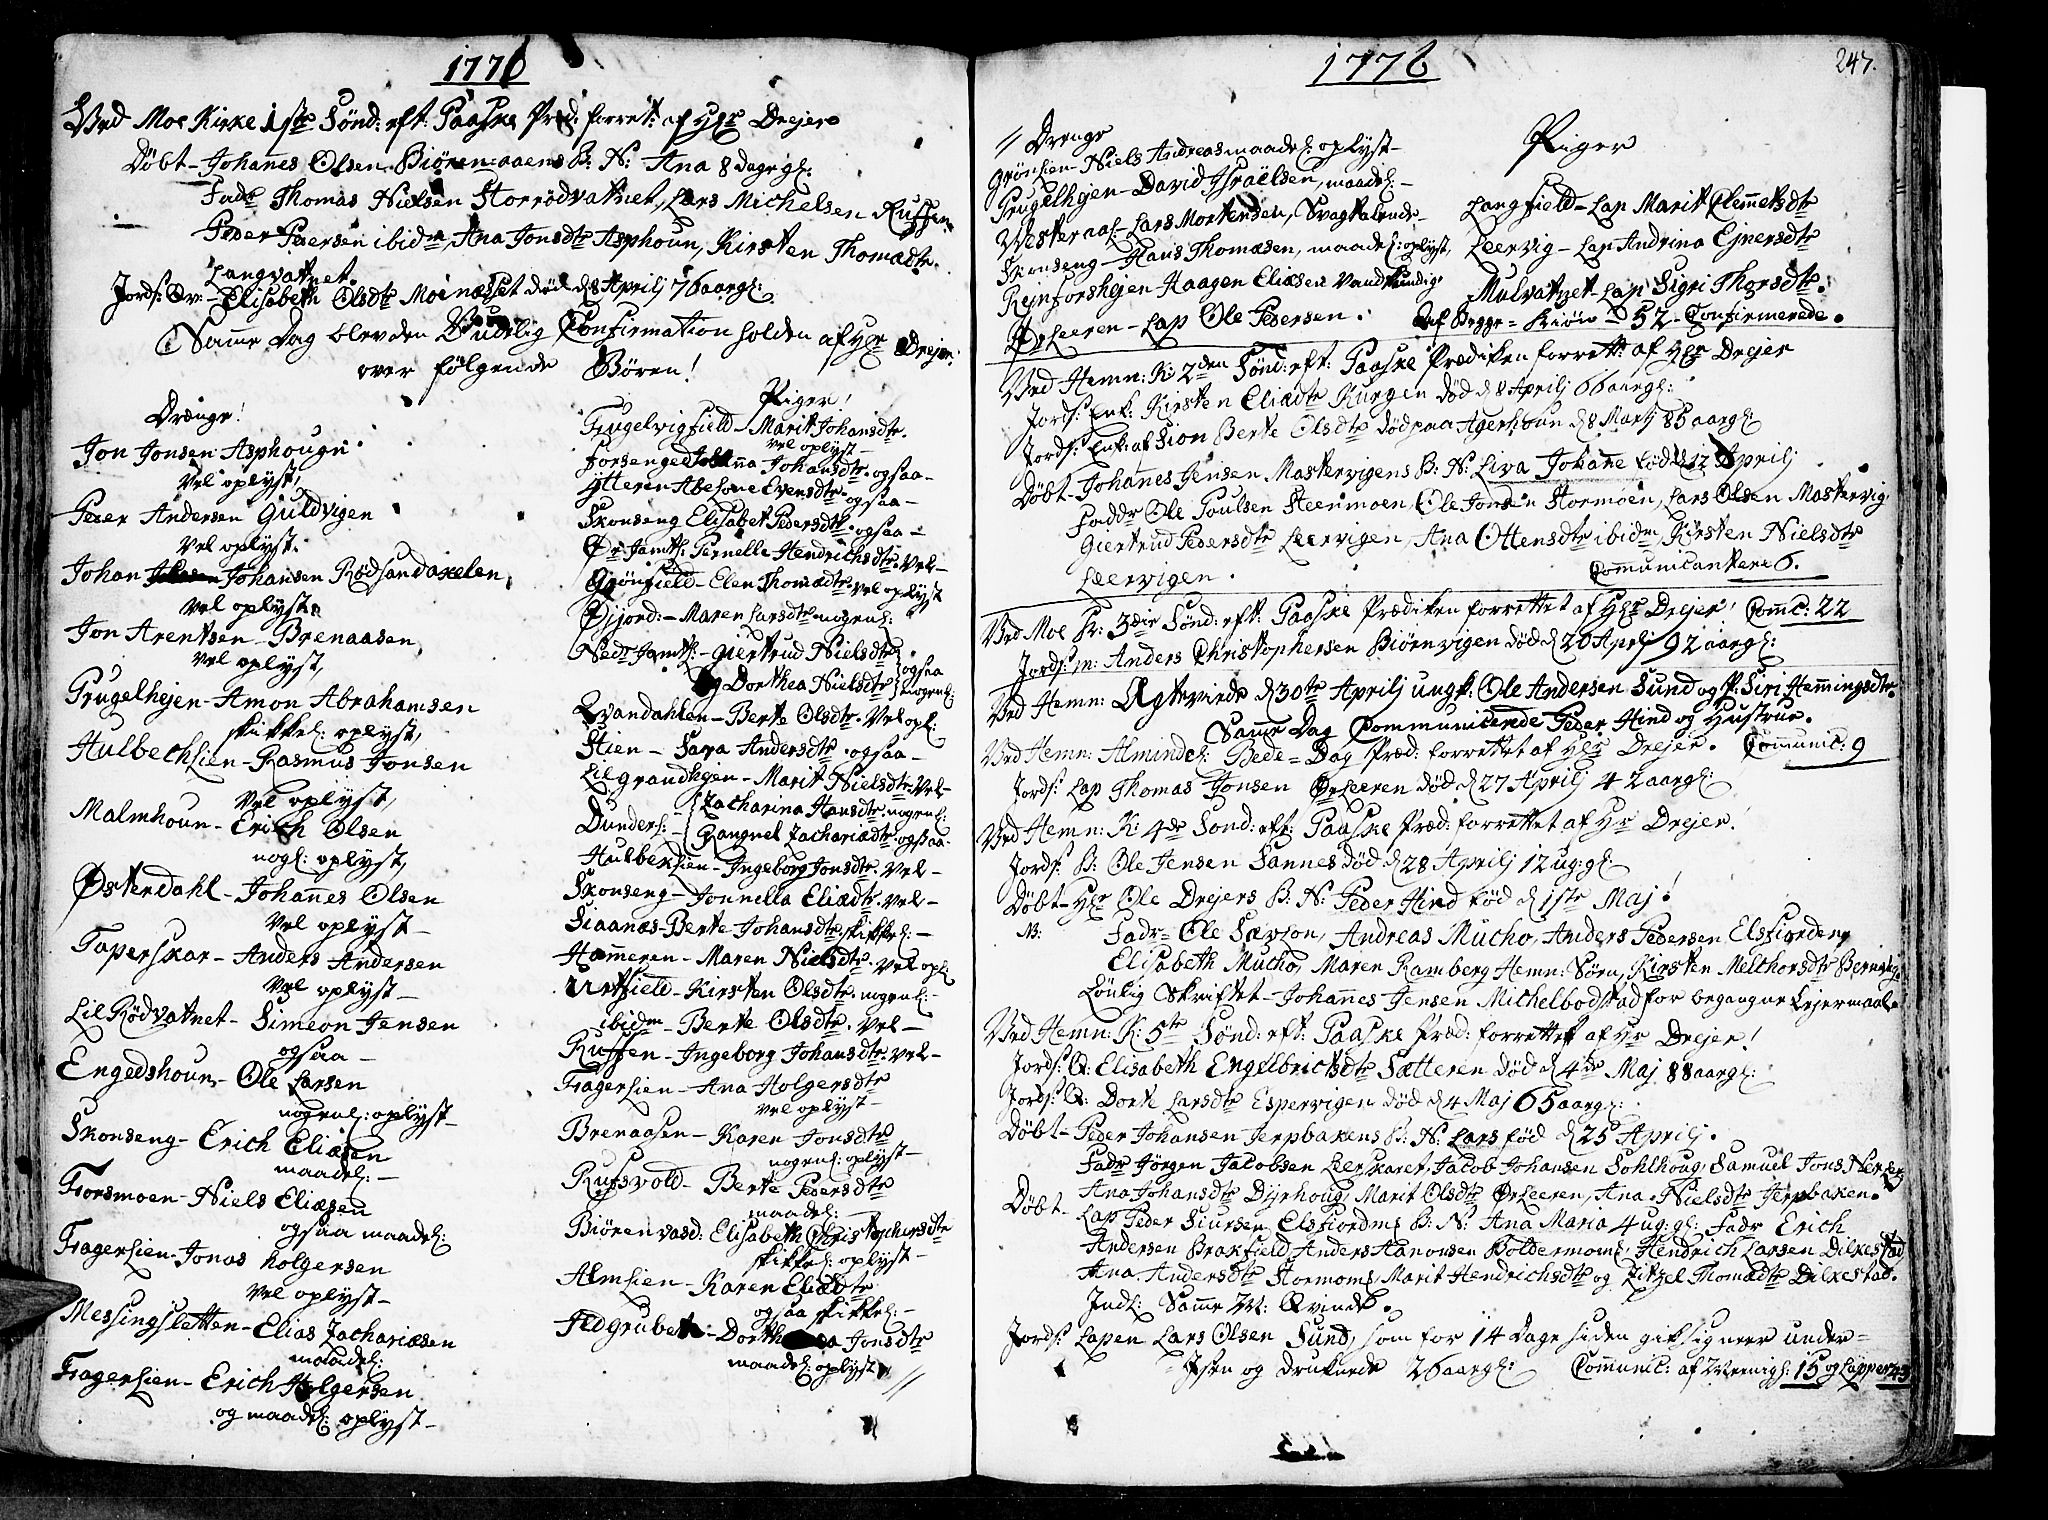 1776
Ved Moe Kirke 1ste Sønd: eft: Paaske Præd: forret: af Hr Drejer
Døbt - Johannes Olsen Biørenaaens B: N: Ana 8 dage gl:
Fadr Thomas Nielsen Storrødvatnet, Lars Michelsen Ruffen
Peder Persen ibidm, Ana Jonsdtr Asphoun, Kirsten Thomædtr
Langvatnet.
Jords: Qv: - Elisabeth Olsdtr Moenæsset død d 8 Aprilj 76 aar gl:
Samme Dag blev den Confirmation holden af Hr Drejer
over følgende Børen!
Drænge!
Jon Jonsen Asphougn
Vel oplyst,
Peder Andersen Guldvigen
Vel oplyst.
Johan Johansen Rødsandaxelen,
Vel oplyst.
Jon Arentsen - Brenaasen
Vel oplyst,
Prugelhejen - Amon Abrahamsen
skikkel: oplyst,
Hulbechlien - Rasmus Jonsen
Vel oplyst,
Malmhoun - Erich Olsen
nogl: oplyst,
Østerdahl - Johannes Olsen
Vel oplyst -
Taperskar - Anders Andersen
Vel oplyst -
Lil Rødvatnet - Simeon Jensen
ogsaa -
Engedshoun - Ole Larsen
nogenl: oplyst -
Skonseng - Erich Eliæsen
maadel: -
Forsmoen - Niels Eliæsen
ogsaa maadel:
Fragerlien - Jonas Holgersen
Vel oplyst -
Messingsletten - Elias Zachariæsen
maadel:
Fragerlien - Erich Holgersen
og maadel: oplyst -
Piger!
Prugelvigfield - Marit Johansdtr.
vel oplyst -
Forsenget Johanna Johansdtr. ogsaa -
Ytteren Abelone Evensdtr - ogsaa -
Skonseng Elisabet Pedersdtr - ogsaa -
Ør Jamtl: Pernelle Hendrichsdtr. Vel -
Grønfield - Elen Thomædtr. vel oplyst
Øijord: - Maren Larsdtr nogenl:
Nedr Jamtl: - Giertrud Nielsdtr
og Dorthea Nielsdtr } ogsaa nogenl:
Qvandahlen - Berte Olsdtr. Vel opl:
Stien - Sara Andersdtr. ogsaa -
Lil Grandhejen - Marit Nielsdtr. Vel -
Dunders: - { Zacharina Hansdtr. nogenl:
Rangnel Zachariædtr - ogsaa.
Hulbeklien - Ingeborg Jonsdtr. Vel -
Skonseng - Jonnella Eliædtr. vel -
Siaanæs - Berte Johansdtr. skikkel: -
Hammeren - Maren Nielsdtr. Vel opl:
Urtfield - Kirsten Olsdtr. nogenl: -
ibidm - Berte Olsdtr. Vel -
Ruffen - Ingeborg Johansdtr. vel -
Fragerlien - Ana Holgersdtr
vel oplyst -
Brenaasen - Karen Jonsdtr
nogenl: oplyst -
Rufsvold - Berte Pedersdtr
maadel: -
Biørenvasd: Elisabeth Christophersdtr
skikkel: oplyst -
Almlien - Karen Eliædtr
ogsaa skikkel: -
Fldgruben - Dorthea Jonsdtr
maadel: oplyst //
1776
247.
// Drenge
Grønlien - Niels Andreas maadel: oplyst -
Prugelhejen - David Israëlsen, maadel: -
Westeraal - Lars Mortensen, Svagtalende -
Skonseng - Hans Thomæsen, maadel: oplyst,
Reinforshejen Haagen Eliæsen Vandkundig
ØrLeeren - Lap Ole Pedersen.
Piger
Langfield - Lap Marit Clemmetsdtr
Leervig - Lap Andrina Ejnersdtr
Mulvatnet - Lap Sigri Thorsdtr.
af Begge = Kiøn = 52 - Confirmerede.
Ved Hemn: K: 2den Sønd: eft: Paaske Prædiken forrett: af Hr Drejer
Jords: Enk: Kirsten Eliædtr Kurgen død d 8 Aprilj 66 aar gl:
Jords: Enk: af Sion Berte Olsdtr død paa Agerhoun d 8 Martj 85 aar gl
Døbt - Johannes Jensen Mastervigens B: N: Liva Johanne fød d 12 Aprilj
Faddr Ole Poulsen Steenmoen, Ole Jonsen Stormoen, Lars Olsen Mastervig
Giertrud Pedersdtr Leervigen, Ana Ottensdtr ibidm, Kirsten Nielsdtr
Leervigen. Communicantere 6.
Ved Moe Kr: 3die Sønd: eft: Paaske Prædiken forrettet af Hr Drejer! Comc: 22
Jords: m: Anders Christophersen Biørnvigen død d 20 Aprilj 92 aar gl:
Ved Hemn: Ægtevirde d 30te Aprilj ungk: Ole Andersen Sund og P: Siri Hemmingsdtr.
Samme Dag Communicerede Peder Hind og Hustrue.
Ved Hemn: Almindel: Bede = Dag Præd: forrettet af Hr Drejer. Communic: 9
Jords: Lap Thomas Jonsen ØrLeeren død d 27 Aprilj 42 aar gl:
Ved Hemn: K: 4de Sønd: eft: Paaske Præd: forrettet af Hr Drejer!
Jords: B: Ole Jensen Sannes død d 28 Aprilj 12 ug: gl:
Døbt - Hr Ole Drejers B: N: Peder Hind fød d 1ste Maj!
NB: Fadr - Ole Sevson, Andreas Mucho, Anders Pedersen Elsfiorden,
Elisabeth Mucho, Maren Ramberg Hemn: Sørn, Kirsten Melchorsdtr Bervig
Lønlig Skriftet - Johannes Jensen Michelbodstad for begangne Lejermaal.
Ved Hemn: K: 5te Sønd: eft: Paaske Præd: forrettet af Hr Drejer!
Jords: Q: Elisabeth Engelbrictsdtr Sætteren død d 4de Maj 88 aar gl:
Jords: Q: Dort Larsdtr Espervigen død d 4 Maj 65 aar gl:
Døbt - Peder Johansen Jerpbakens B: N: Lars fød d 25 Aprilj.
Fadr Jørgen Jacobsen Leerskaret, Jacob Johansen Sohlhoug, Samuel Jons
Ana Johansdtr Dyrhoug, Marit Olsdtr ØrLeeren, Ana Nielsdtr Jerpbaken.
Døbt - Lap Peder Siursen Elsfiordens B: N: Ana Maria 4 ug: gl: Fadr Erich
Andersen Brakfield, Anders Aanonsen Holdermoms, Hendrich Larsen Dilkestad
Ana Andersdtr Stormoms, Marit Hendrichsdtr og Zitzel Thomædtr Dilkestad.
Indl: Samme M: Qvinde.
Jords: Lapen Lars Olsen Sund, som for 14 Dage siden gik igneer under =
= Isen og druknede 26 aar gl: Communic: af Meenigh: 15 og Lapper 43